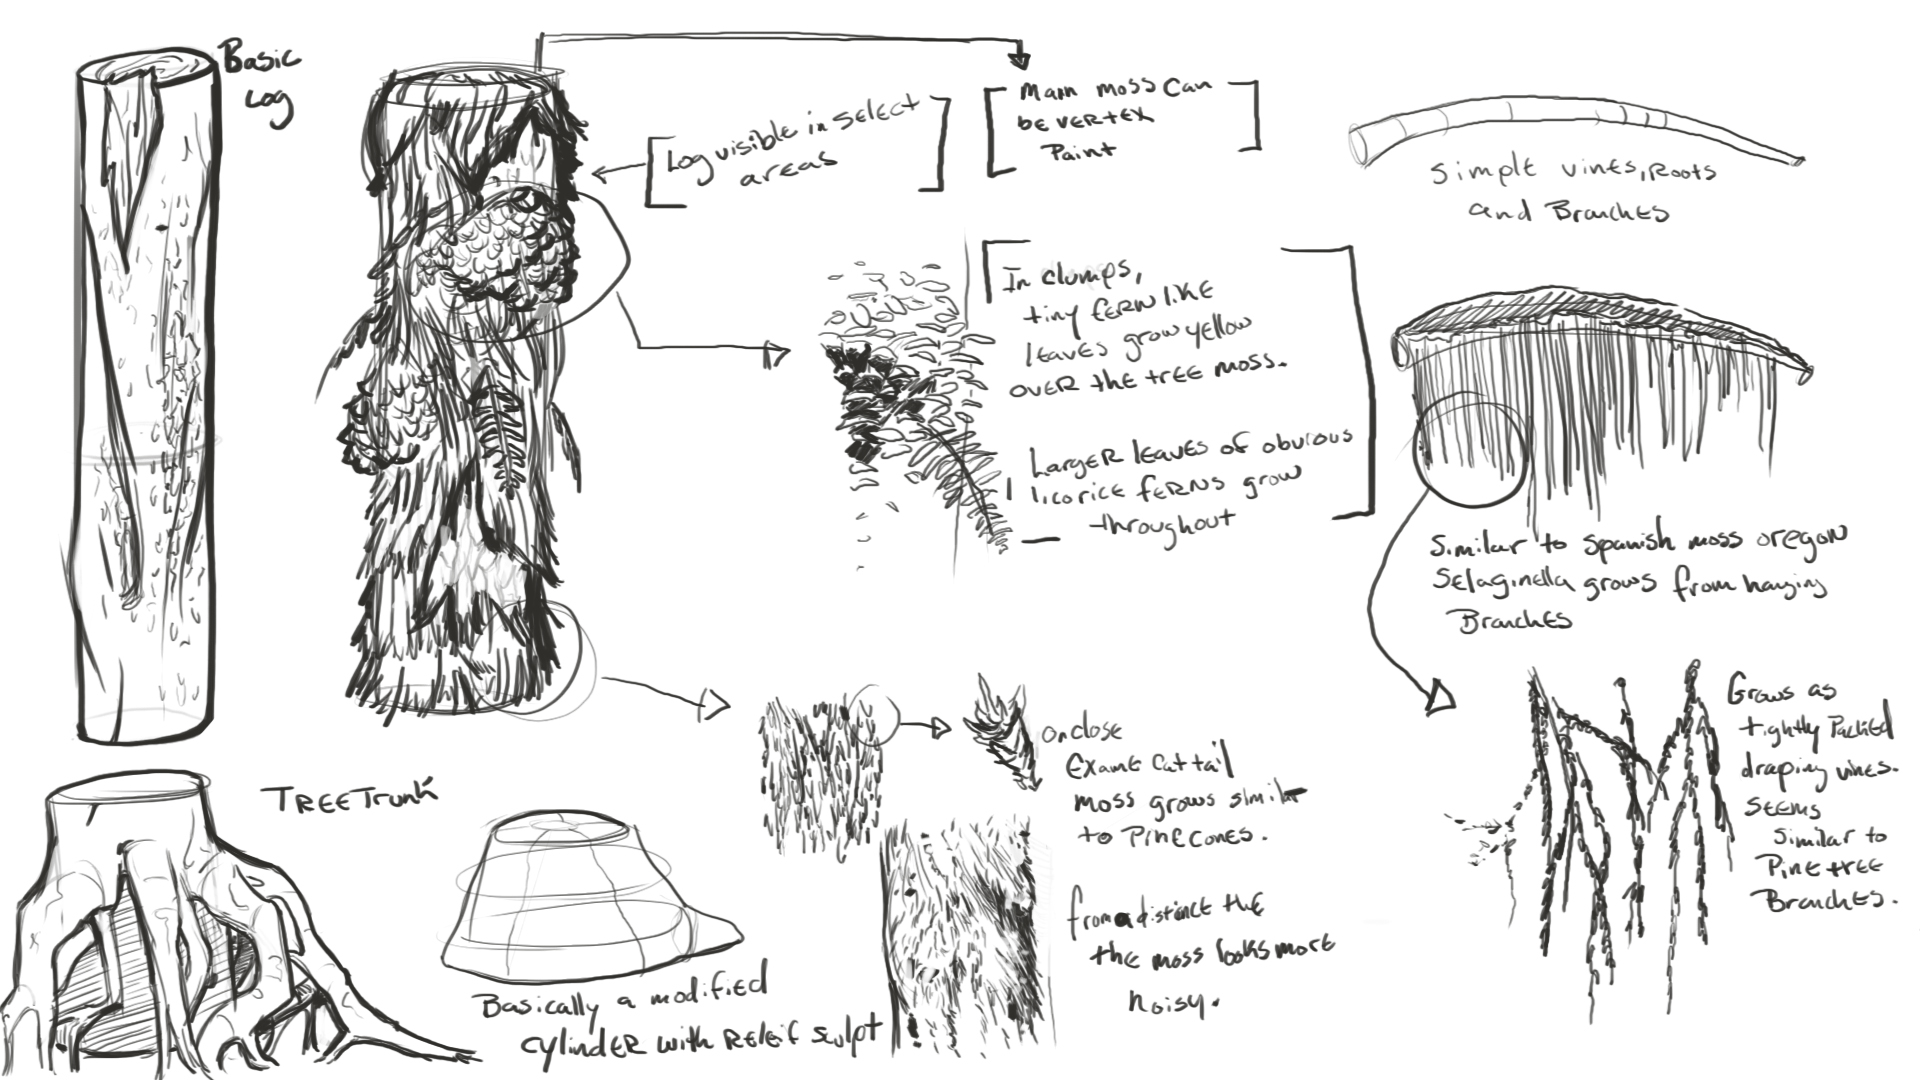 Basic
Log
Log visible in select
areas
Main moss can
be vertex
Paint
Simple vines, Roots
and Branches
In clumps,
tiny fern like
leaves grow yellow
over the tree moss.
Larger leaves of obvious
licorice ferns grow
throughout
Similar to spanish moss oregon
Selaginella grows from hanging
Branches
Grows as
tightly Packed
draping vines.
Seems
Similar to
Pine tree
Branches.
on close
Exame Cattail
moss grows similar
to Pinecones.
from a distance the
the moss looks more
noisy.
Tree Trunk
Basically a modified
cylinder with Releif sculpt